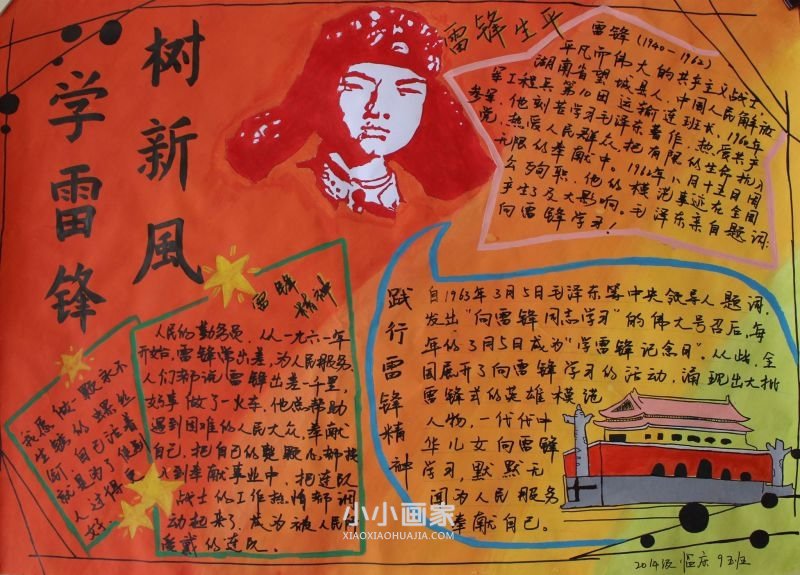 学雷锋
树新風
雷锋生平
雷锋（1940—1962）
平凡而伟大的共产主义战士
湖南省望城县人，中国人民解放
军工程兵第10团运输连班长，1960年
参军，他刻苦学习毛泽东著作，热爱共产
党，热爱人民群众，把有限的生命投入
无限的奉献中。1962年八月十五日因
公殉职，他的模范事迹在全国
产生了及大影响。毛泽东亲自题词：
向雷锋学习！
雷锋
精神
人民的勤务员，从一九六一年
开始，雷锋常出差，为人民服务
人们都说雷锋出差一千里，
好事做了一火车，他总帮助
遇到困难的人民大众，奉献
自己，把自己的整颗心都投
入到奉献事业中，把连队
战士的工作热情都调
动起来了，成为被人民
爱戴的连队。
我愿做一颗永不
生锈的螺丝
钉，自己活着
就是为了使别
人过得更
好
践行雷锋精神
自1963年3月5日毛泽东等中央领导人题词，
发出“向雷锋同志学习”的伟大号召后，每
年的3月5日成为“学雷锋记念日”。从此，全
国展开了向雷锋学习的活动，涌现出大批
雷锋式的英雄模范
人物，一代代中
华儿女向雷锋
学习，默默无
闻为人民服务
奉献自己。
小小画家
XIAOXIAOHUAJIA.COM
2014级 9班